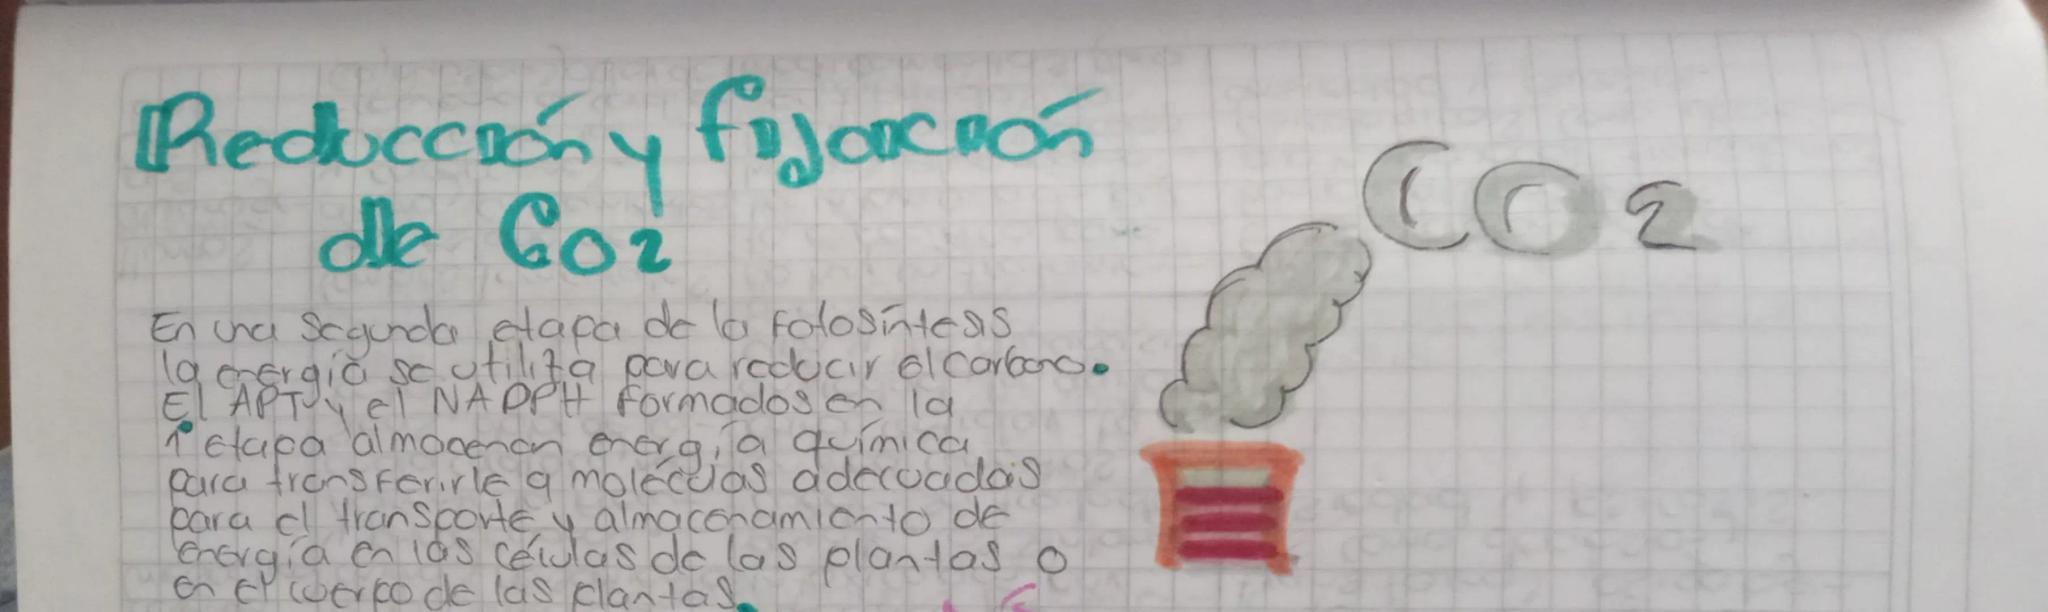 Reducción y fijación
de CO2
CO2
En una segunda etapa de la fotosíntesis
la energía se utiliza para reducir el carbono.
El APT y el NADPH formados en la
1° etapa almacenan energía química
para transferirle a moléculas adecuadas
para el transporte y almacenamiento de
energía en las células de las plantas o
en el cuerpo de las plantas.